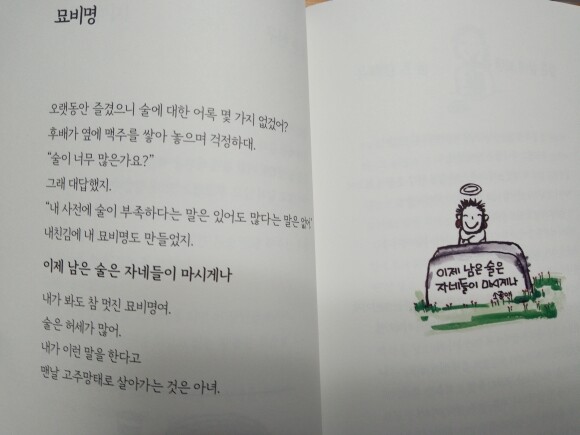 묘비명
오랫동안 즐겼으니 술에 대한 어록 몇 가지 없겠어?
후배가 옆에 맥주를 쌓아 놓으며 걱정하대.
“술이 너무 많은가요?”
그래 대답했지.
“내 사전에 술이 부족하다는 말은 있어도 많다는 말은 없어”
내친김에 내 묘비명도 만들었지.
이제 남은 술은 자네들이 마시게나
내가 봐도 참 멋진 묘비명여.
술은 허세가 많어.
내가 이런 말을 한다고
맨날 고주망태로 살아가는 것은 아녀.
이제 남은 술은
자네들이 마시게나